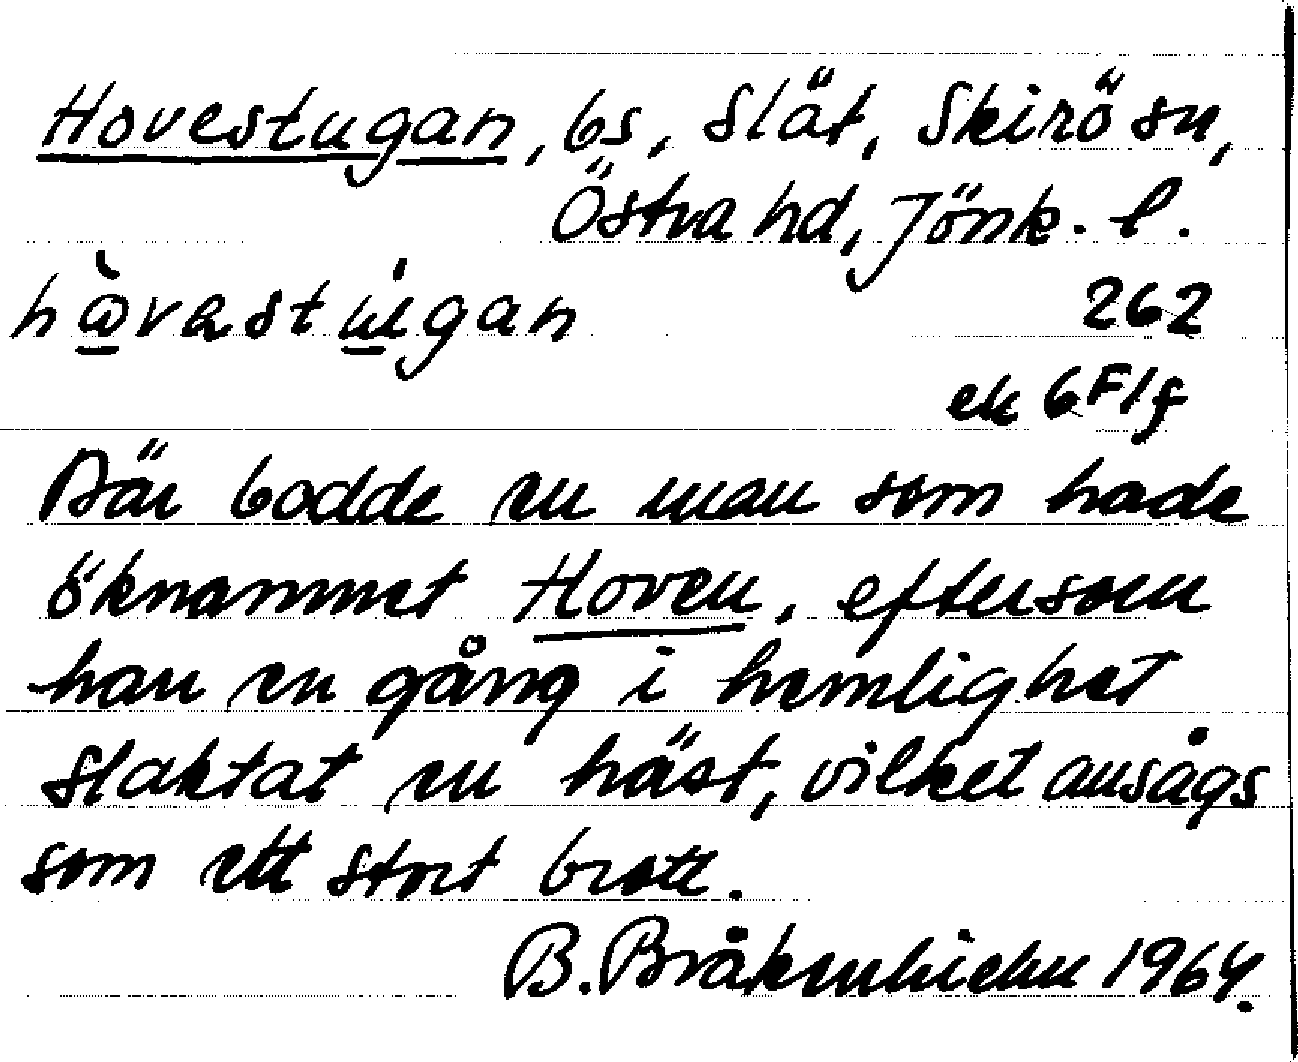 Hovestugan, bs, Slät, Skirö sn,
Östra hd, Jönk. l.
hàvastùgan 262
ek 6F1f
Där bodde en man som hade
öknamnet Hoven, eftersom
han en gång i hemlighet
slaktat en häst, vilket ansågs
som ett stort brott.
B. 1964.